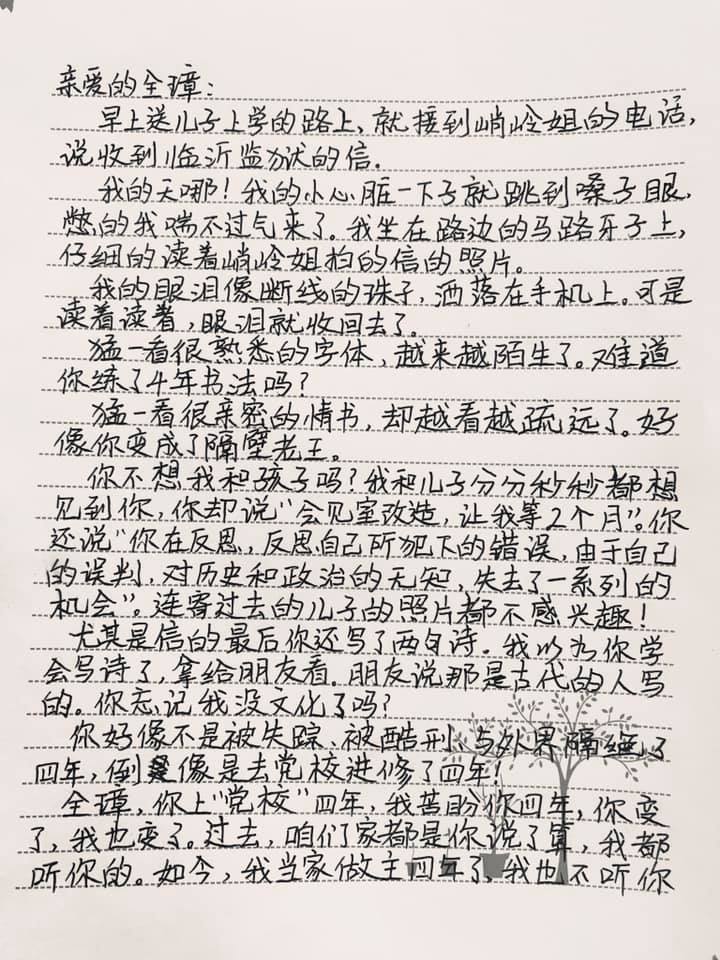 亲爱的全璋：
早上送儿子上学的路上、就接到峭岭姐的电话，
说收到临沂监狱的信。
我的天哪！我的小心脏一下子就跳到嗓子眼，
憋的我喘不过气来了。我坐在路边的马路牙子上，
仔细的读着峭岭姐拍的信的照片。
我的眼泪像断线的珠子，洒落在手机上。可是
读着读着，眼泪就收回去了。
猛一看很熟悉的字体，越来越陌生了。难道
你练了4年书法吗？
猛一看很亲密的情书，却越看越疏远了。好
像你变成了隔壁老王。
你不想我和孩子吗？我和儿子分分秒秒都想
见到你，你却说“会见室改造，让我等2个月”。你
还说“你在反思，反思自己所犯下的错误，由于自己
的误判，对历史和政治的无知，失去了一系列的
机会”。连寄过去的儿子的照片都不感兴趣！
尤其是信的最后你还写了两句诗。我以为你学
会写诗了，拿给朋友看。朋友说那是古代的人写
的。你忘记我没文化了吗？
你好像不是被失踪、被酷刑、与外界隔绝了
四年，倒像是去党校进修了四年！
全璋，你上“党校”四年，我苦盼你四年，你变
了，我也变了。过去，咱们家都是你说了算，我都
听你的。如今，我当家做主四年了，我也不听你